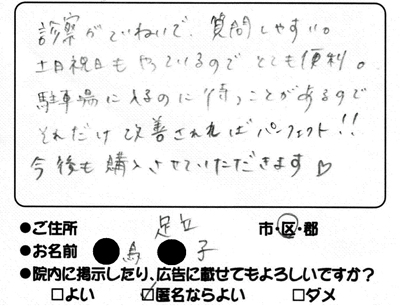 診察がていねいで、質問しやすい。
土日祝日もやっているのでとても便利。
駐車場に入るのに待つことがあるので
それだけ改善されればパーフェクト!!
今後も購入させていただきます♡
●ご住所 足立 市・区・郡
●お名前 ●鳥●子
●院内に掲示したり、広告に載せてもよろしいですか?
□よい ☑匿名ならよい □ダメ